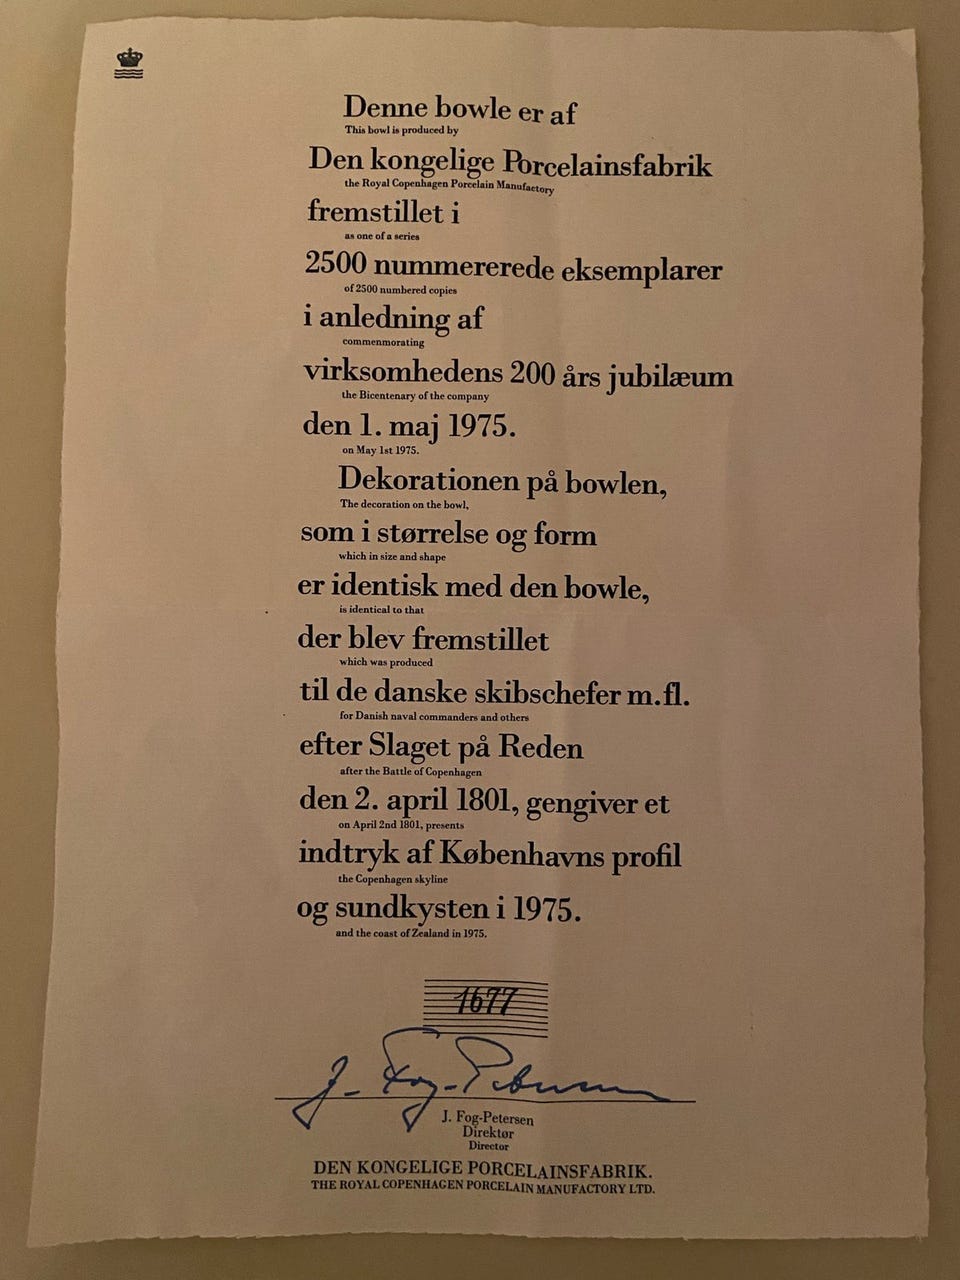 Denne bowle er af
This bowl is produced by
Den kongelige Porcelainsfabrik
the Royal Copenhagen Porcelain Manufactory
fremstillet i
as one of a series
2500 nummererede eksemplarer
of 2500 numbered copies
i anledning af
commenmorating
virksomhedens 200 års jubilæum
the Bicentenary of the company
den 1. maj 1975.
on May 1st 1975.
Dekorationen på bowlen,
The decoration on the bowl,
som i størrelse og form
which in size and shape
er identisk med den bowle,
is identical to that
der blev fremstillet
which was produced
til de danske skibschefer m.fl.
for Danish naval commanders and others
efter Slaget på Reden
after the Battle of Copenhagen
den 2. april 1801, gengiver et
on April 2nd 1801, presents
indtryk af Københavns profil
the Copenhagen skyline
og sundkysten i 1975.
and the coast of Zealand in 1975.
1677
J. Fog-Petersen
J. Fog-Petersen
Direktør
Director
DEN KONGELIGE PORCELAINSFABRIK.
THE ROYAL COPENHAGEN PORCELAIN MANUFACTORY LTD.